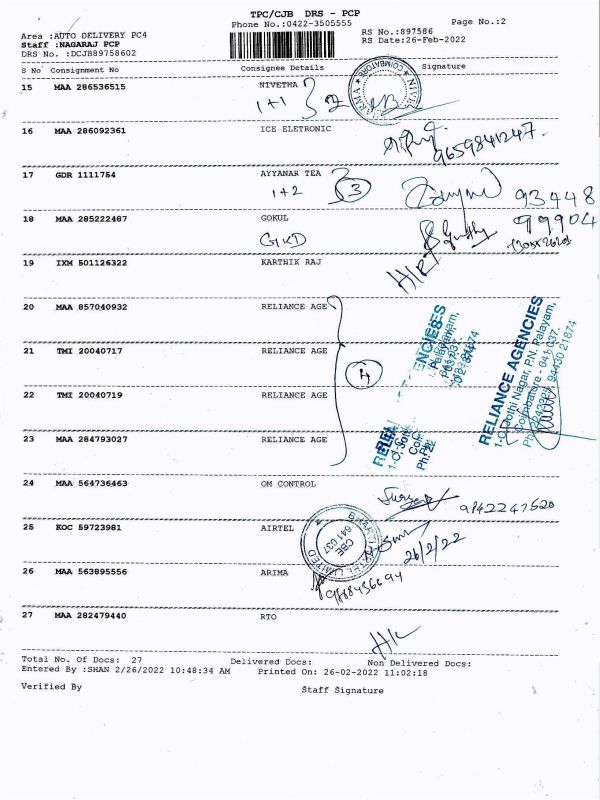 TPC/CJB DRS - PCP
Phone No.:0422-3505555
Page No.:2
Area :AUTO DELIVERY PC4
RS No.:897586
Staff :NAGARAJ PCP
RS Date:26-Feb-2022
DRS No. :DCJB89758602
S No Consignment No Consignee Details Signature
15 MAA 286536515 NIVETHA
1+1 2
COIMBATORE
16 MAA 286092361 ICE ELETRONIC
9659841247.
17 GDR 1111754 AYYANAR TEA
1+2 3
93448
99904
18 MAA 285222487 GOKUL
GKD
19 IXM 501126322 KARTHIK RAJ
20 MAA 857040932 RELIANCE AGE
21 TMI 20040717 RELIANCE AGE
4
22 TMI 20040719 RELIANCE AGE
23 MAA 284793027 RELIANCE AGE
RELIANCE AGENCIES
1-C, Jothi Nagar, P.N. Palayam,
Coimbatore - 641 037.
94430 21874
24 MAA 564736463 OM CONTROL
9842247520
25 KOC 59723981 AIRTEL
BHARTI AIRTEL LIMITED
CBE
641 037
26/2/22
26 MAA 563895556 ARIMA
27 MAA 282479440 RTO
Total No. Of Docs: 27 Delivered Docs: Non Delivered Docs:
Entered By :SHAN 2/26/2022 10:48:34 AM Printed On: 26-02-2022 11:02:18
Verified By Staff Signature